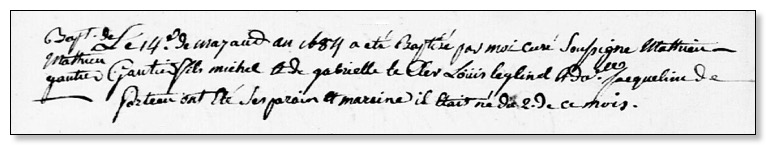 Bapt. de Le 14e. de may aud an 1684 a eté Baptisé par moi curé Soussigné Mathieu
Mathieu
gautier Gautier fils michel & de gabrielle le Cler Loüis leglind & da. Jacqueline de
porteau ont été Ses parain et maraine il était né du 2. de ce mois.